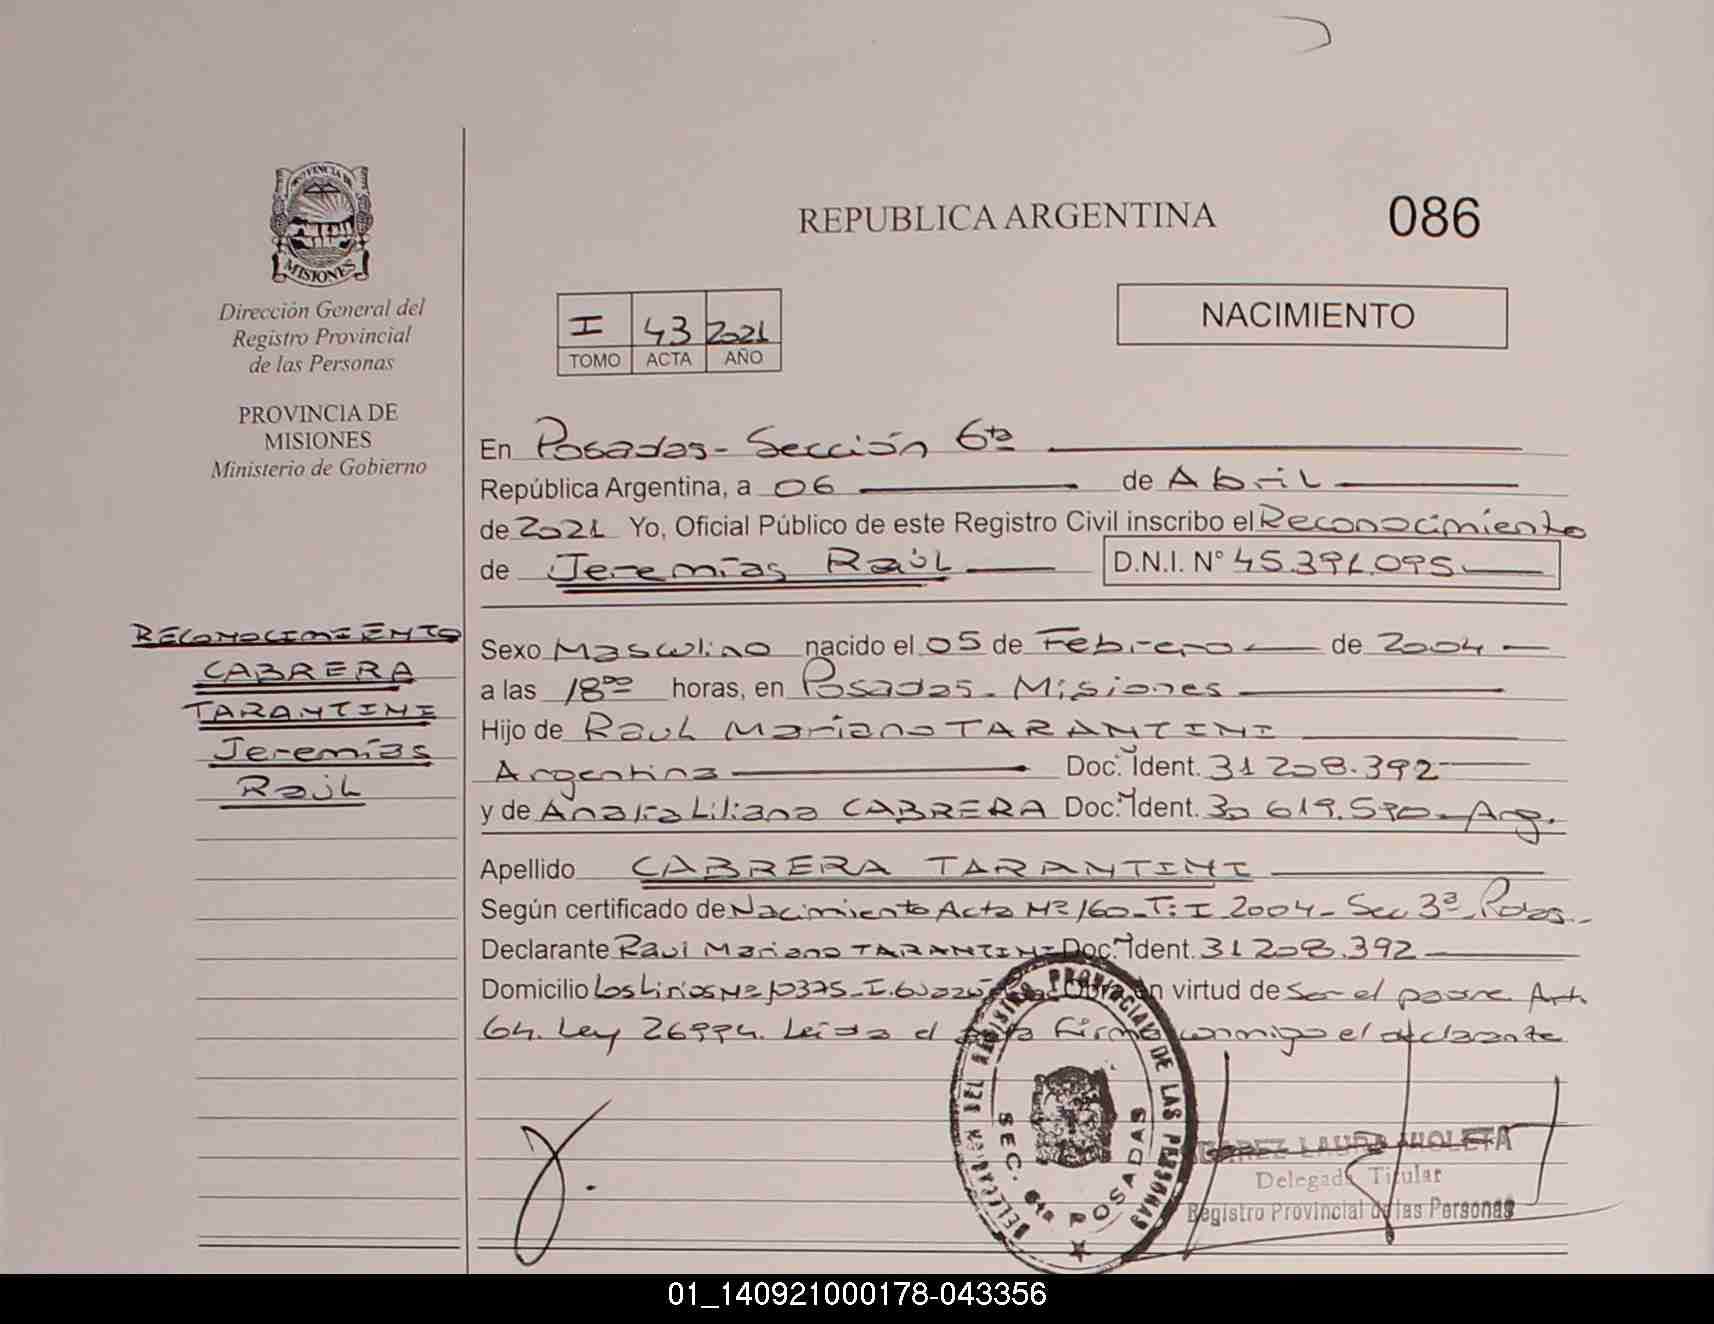 PROVINCIA DE
MISIONES
Dirección General del
Registro Provincial
de las Personas
PROVINCIA DE
MISIONES
Ministerio de Gobierno
RECONOCIMIENTO
CABRERA
TARANTINI
Jeremías
Raúl
REPUBLICA ARGENTINA
086
I 43 2021
TOMO ACTA AÑO
NACIMIENTO
En Posadas - Sección 6ta
República Argentina, a 06 de Abril
de 2021 Yo, Oficial Público de este Registro Civil inscribo el Reconocimiento
de Jeremías Raúl D.N.I. Nº 45.391.095
Sexo Masculino nacido el 05 de Febrero de 2004
a las 18ºº horas, en Posadas - Misiones
Hijo de Raul Mariano TARANTINI
Argentina Doc. Ident. 31 208.392
y de Analia Liliana CABRERA Doc. Ident. 30 619.590 - Arg.
Apellido CABRERA TARANTINI
Según certificado de Nacimiento Acta Nº 160 - T: I 2004 - Sec 3ª - Pdas.
Declarante Raul Mariano TARANTINI Doc. Ident. 31 208.392
Domicilio Los Lirios Nº 10375 - I. Obra en virtud de Ser el padre Art.
64. Ley 26994. Leida el firma conmigo el declarante
DELEGACION DEL REGISTRO PROVINCIAL DE LAS PERSONAS
SEC. 6ta POSADAS
LAURA VIOLETA
Delegada Titular
Registro Provincial de las Personas
01_140921000178-043356